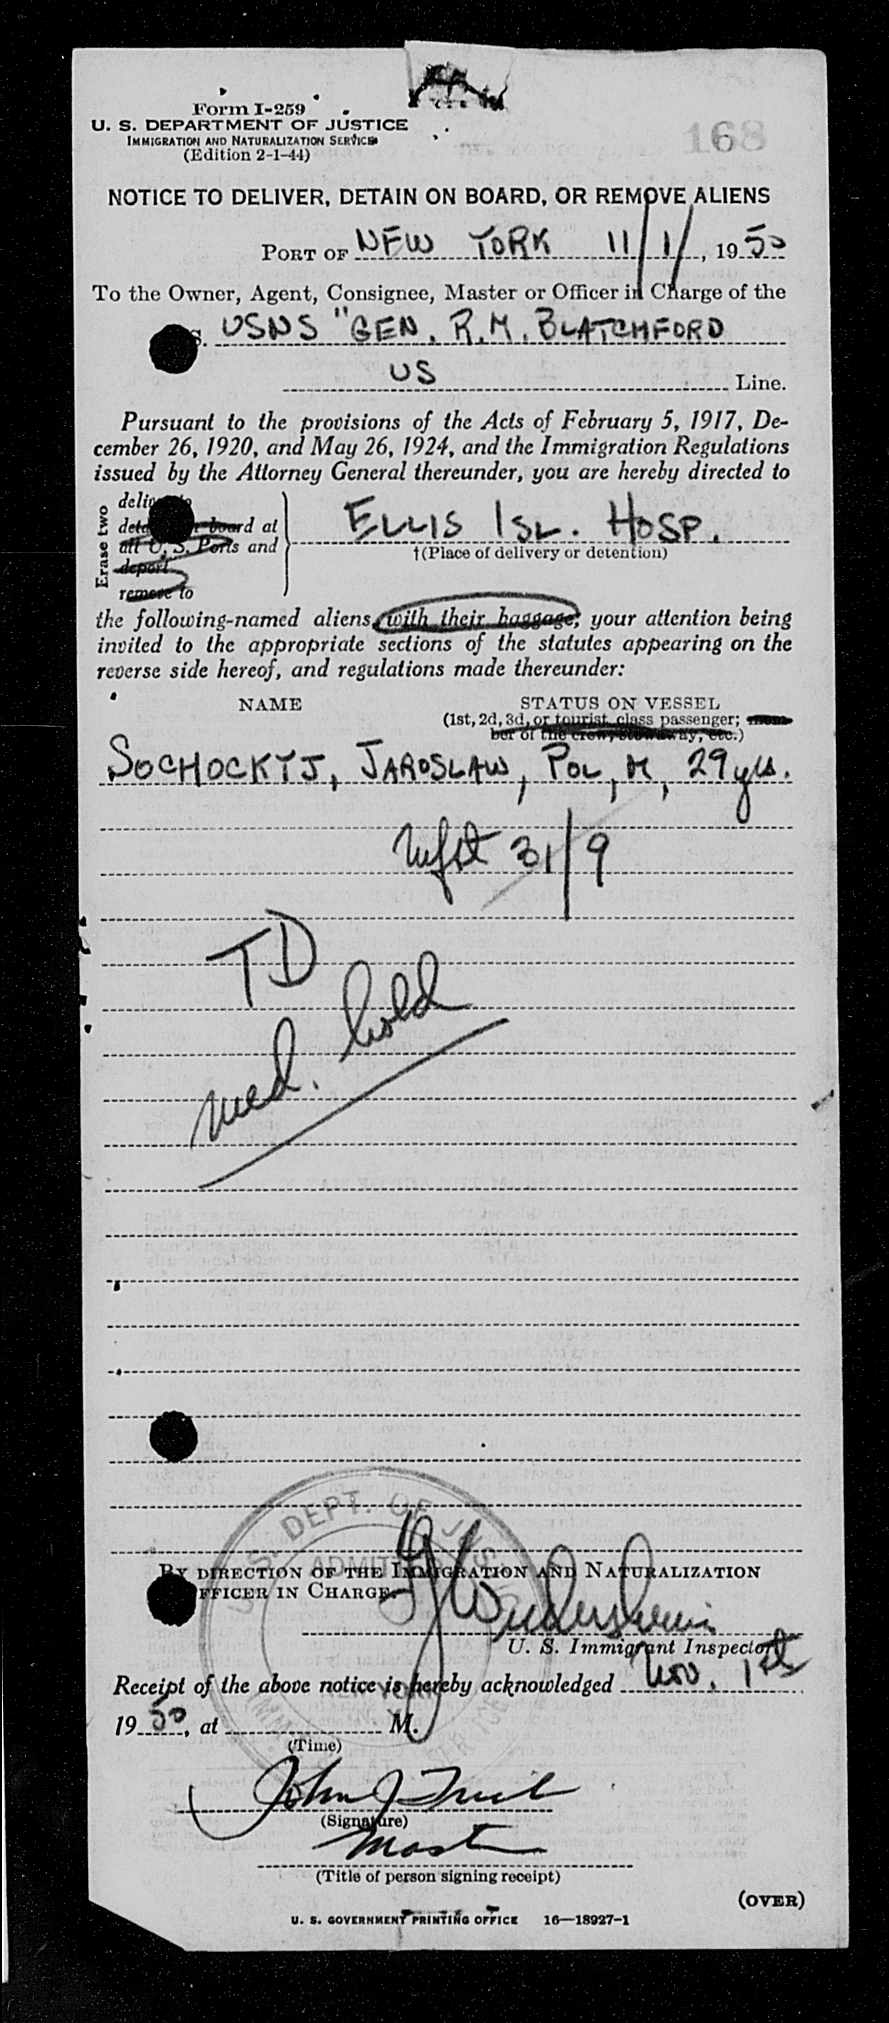 Form I-259
U. S. DEPARTMENT OF JUSTICE
IMMIGRATION AND NATURALIZATION SERVICE
(Edition 2-1-44)
168
NOTICE TO DELIVER, DETAIN ON BOARD, OR REMOVE ALIENS
PORT OF NEW YORK 11/1/, 1950
To the Owner, Agent, Consignee, Master or Officer in Charge of the
S. USNS "GEN. R.M. BLATCHFORD
US Line.
Pursuant to the provisions of the Acts of February 5, 1917, De-
cember 26, 1920, and May 26, 1924, and the Immigration Regulations
issued by the Attorney General thereunder, you are hereby directed to
Erase two
deliver to
board at
all U. S. Ports and
deport
remove to
ELLIS ISL. HOSP.
†(Place of delivery or detention)
the following-named aliens, with their baggage, your attention being
invited to the appropriate sections of the statutes appearing on the
reverse side hereof, and regulations made thereunder:
NAME STATUS ON VESSEL
(1st, 2d, 3d, or tourist class passenger; mem-
ber of the crew, stowaway, etc.)
SOCHOCKYJ, JAROSLAW, POL, M, 29 yrs.
Mfst 31/9
TD
med. hold
U.S. DEPT. OF JUSTICE
ADMITTED
NEW YORK
BY DIRECTION OF THE IMMIGRATION AND NATURALIZATION
OFFICER IN CHARGE.
U. S. Immigrant Inspector
Receipt of the above notice is hereby acknowledged Nov. 1st
1950, at M.
(Time)
John J
(Signature)
Master
(Title of person signing receipt)
(OVER)
U. S. GOVERNMENT PRINTING OFFICE 16—18927-1